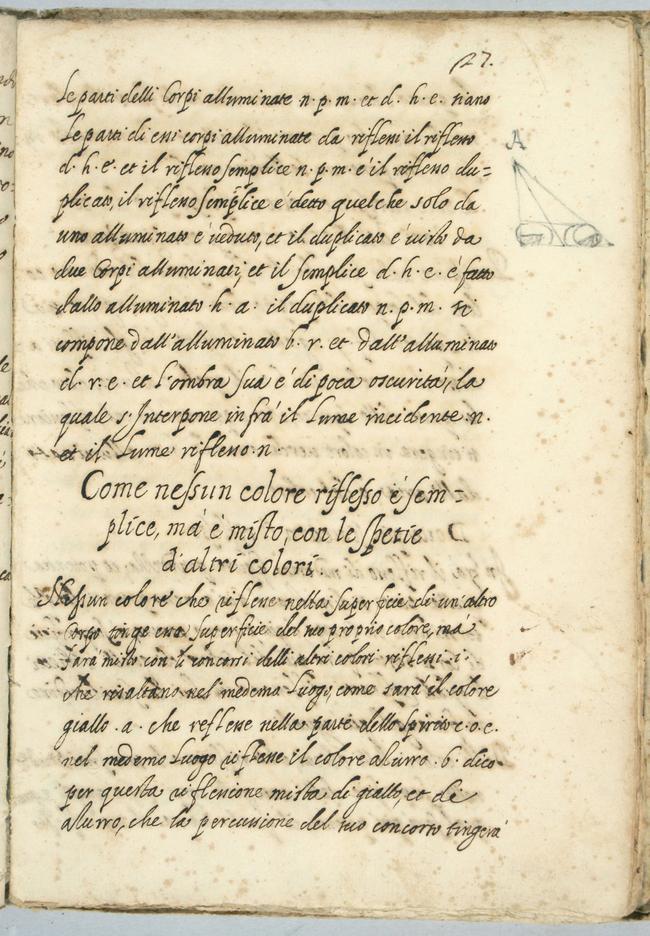 127.
Le parti delli Corpi alluminate n. p. m. et d. h. e. siano
Le parti di essi corpi alluminate da riflessi il riflesso
d. h. e. et il riflesso semplice n. p. m. é il riflesso du=
plicato, il riflesso semplice é detto quel che solo da
uno alluminato e ueduto, et il duplicato é uisto da
due Corpi alluminati, et il semplice d. h. e. é fatto
dallo alluminato h. a. il duplicato n. p. m. si
compone dall'alluminato b. r. et dall'alluminato
d. r. e. et l'ombra sua é di poca oscuritá, la
quale s'Interpone infrá il Lume incidente n.
et il Lume riflesso n.
A
Come nessun colore riflesso é sem=
plice, má é misto, con le spetie
d'altri colori.
Nessun colore che riflesse nella superficie di un'altro
Corpo tinge essa superficie del suo proprio colore, má
sara misto con li concorsi delli altri colori riflessi .i.
che risaltano nel medemo Luogo, come sará il colore
giallo .a. che reflesse nella parte dello Sperico c. o. e.
nel medemo Luogo riflesse il colore aZurro .b. dico
per questa riflessione mista di giallo, et di
aZurro, che la percussione del suo concorso tingerá